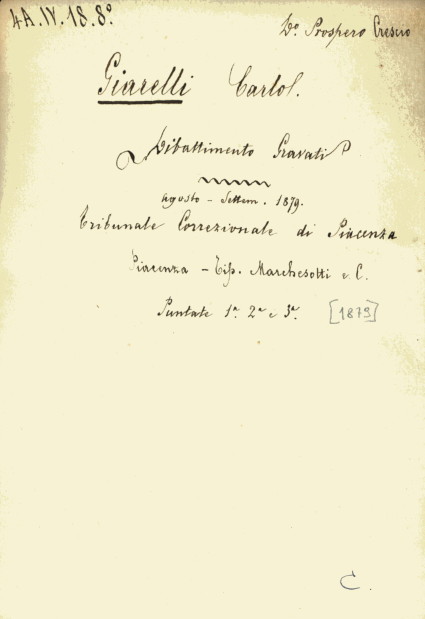 4A.IV.18.8°
D.° Prospero Crescio
Giarelli Carlo.
Dibattimento Gravati
Agosto - Settem. 1879.
Tribunale Correzionale di Piacenza
Piacenza - Tip. Marchesotti e C.
Puntate 1ª. 2ª e 3ª. [1879]
C.